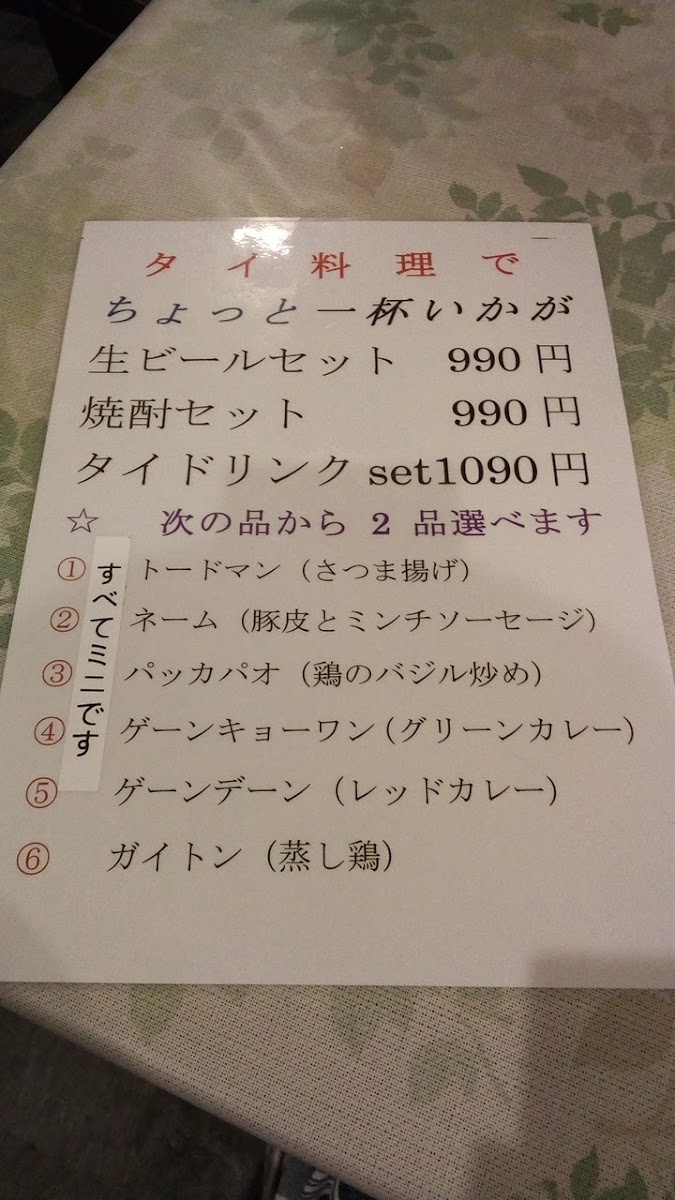 タイ料理で
ちょっと一杯いかが
生ビールセット 990円
焼酎セット 990円
タイドリンクset1090円
☆ 次の品から2品選べます
すべてミニです
① トードマン（さつま揚げ）
② ネーム（豚皮とミンチソーセージ）
③ パッカパオ（鶏のバジル炒め）
④ ゲーンキョーワン（グリーンカレー）
⑤ ゲーンデーン（レッドカレー）
⑥ ガイトン（蒸し鶏）